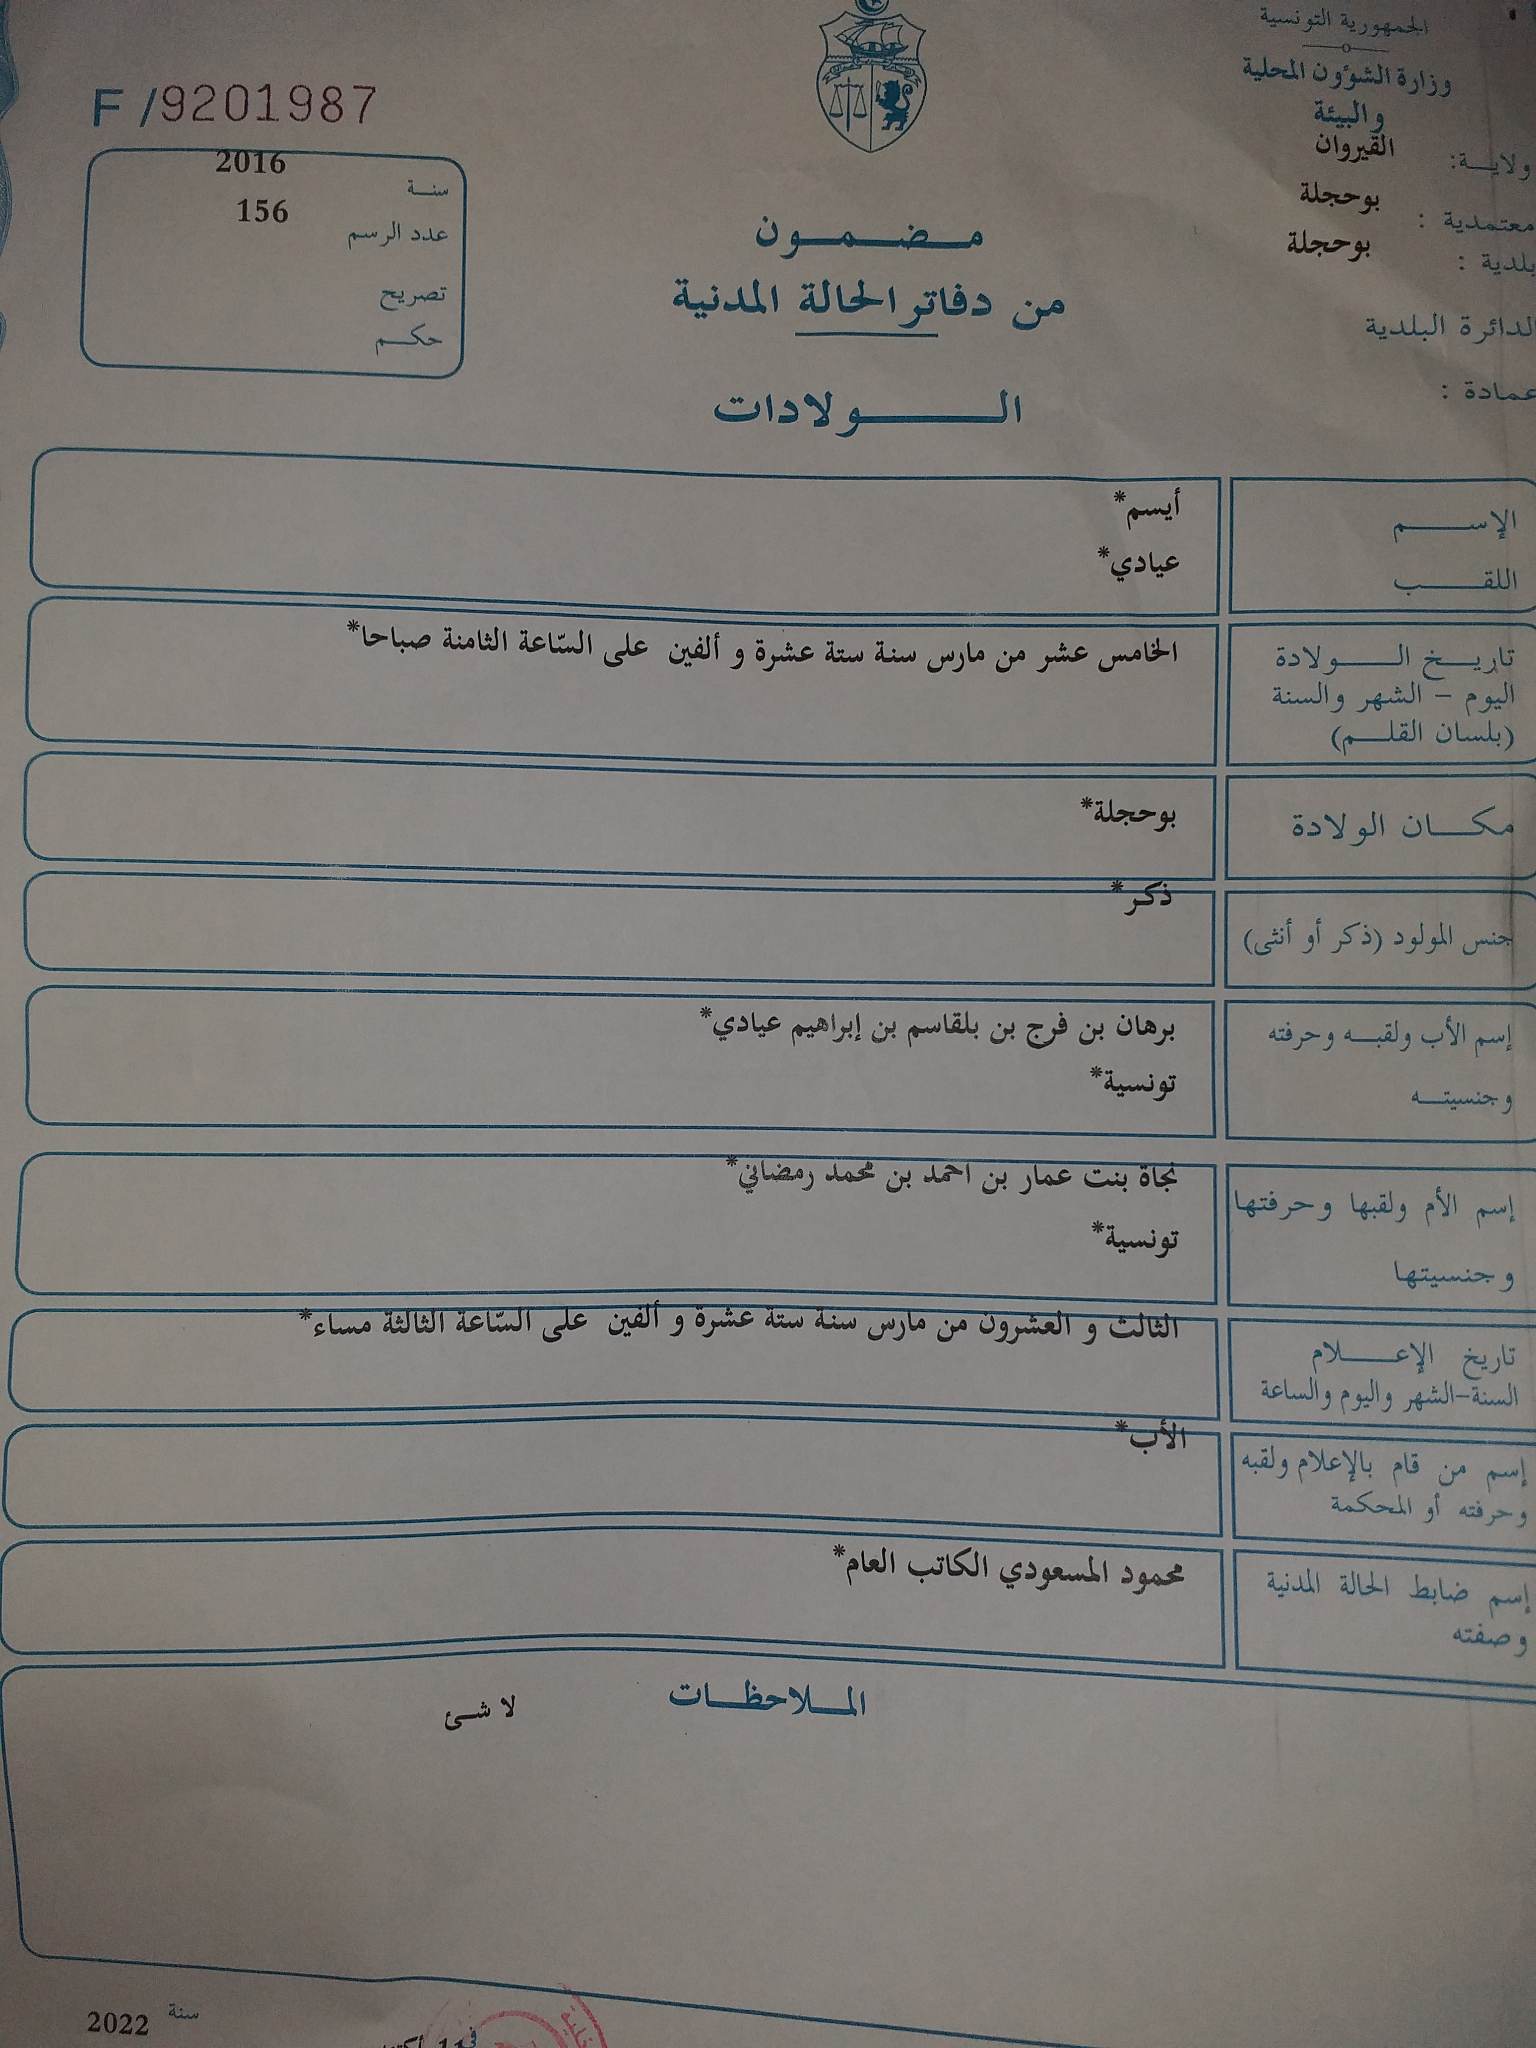 الجمهورية التونسية
وزارة الشؤون المحلية
والبيئة
ولايـة: القيروان
معتمدية : بوحجلة
بلدية : بوحجلة
الدائرة البلدية
عمادة :
F /9201987
سنـة 2016
عدد الرسم 156
تصريح
حكـم
مـضـمـون
من دفاتر الحالة المدنية
الـولادات
الإسـم أيسم*
اللقـب عيادي*
تاريـخ الـولادة الخامس عشر من مارس سنة ستة عشرة و ألفين على السّاعة الثامنة صباحا*
اليوم – الشهر والسنة
(بلسان القلـم)
مكـان الولادة بوحجلة*
جنس المولود (ذكر أو أنثى) ذكر*
إسم الأب ولقبـه وحرفته برهان بن فرج بن بلقاسم بن إبراهيم عيادي*
وجنسيتـه تونسية*
إسم الأم ولقبها وحرفتها نجاة بنت عمار بن احمد بن محمد رمضاني*
وجنسيتها تونسية*
تاريخ الإعـلام الثالث و العشرون من مارس سنة ستة عشرة و ألفين على السّاعة الثالثة مساء*
السنة-الشهر واليوم والساعة
إسم من قام بالإعلام ولقبه الأب*
وحرفته أو المحكمة
إسم ضابط الحالة المدنية محمود المسعودي الكاتب العام*
وصفته
المـلاحظـات
لا شئ
في
سنة 2022